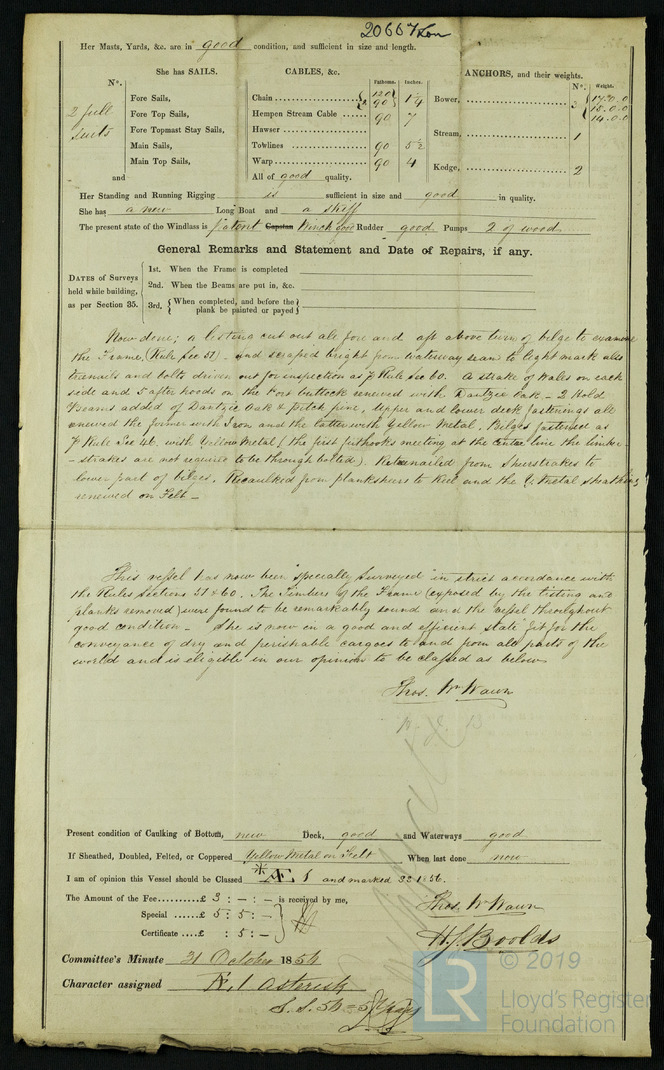 20667 Lon
Her Masts, Yards, &c. are in good condition, and sufficient in size and length.
She has SAILS. CABLES, &c. ANCHORS, and their weights.
N°. Fathoms. Inches. N°. Weight.
2 full suits
Fore Sails,
Fore Top Sails,
Fore Topmast Stay Sails,
Main Sails,
Main Top Sails,
and
Chain 120 90 1 1/4
Hempen Stream Cable 90 7
Hawser
Towlines 90 5 1/2
Warp 90 4
All of good quality.
Bower, 3 17.2.0.0 15.0.0 14.0.0
Stream, 1
Kedge, 2
Her Standing and Running Rigging is sufficient in size and good in quality.
She has a new Long Boat and a skiff
The present state of the Windlass is patent Capstan Winch good Rudder good Pumps 2 of wood
General Remarks and Statement and Date of Repairs, if any.
DATES of Surveys held while building, as per Section 35.
1st. When the Frame is completed
2nd. When the Beams are put in, &c.
3rd, { When completed, and before the plank be painted or payed }
Now done; a listing cut out all fore and aft above turn of bilge to examine
the Frame, (Rule Sec 57) - and scraped bright from waterway seam to light mark also
treenails and bolts driven out for inspection as p Rule Sec 60. A strake of Wales on each
side and 5 after hoods on the Port buttock renewed with Dantzic Oak - 2 Hold
Beams added of Dantzic Oak & pitch pine, upper and lower deck fastenings all
renewed the former with Iron and the latter with Yellow Metal, Bilges fastened as
p Rule Sec 46. with Yellow Metal (the first futhooks meeting at the centre line the limber
- strakes are not required to be through bolted). Retreenailed from Sheerstrakes to
lower part of bilges, Recaulked from planksheers to Keel and the Y. Metal sheathing
renewed on Felt -
This vessel has now been specially surveyed in strict accordance with
the Rules Sections 57 & 60. The Timbers of the Frame (exposed by the listing and
planks removed) were found to be remarkably sound and the vessel throughout
good condition - She is now in a good and efficient state fit for the
conveyance of dry and perishable cargoes to and from all parts of the
world and is eligible in our opinion to be classed as below
Thos. Wm Wawn
Present condition of Caulking of Bottom, new Deck, good and Waterways good
If Sheathed, Doubled, Felted, or Coppered Yellow Metal on Felt When last done now
I am of opinion this Vessel should be Classed * Æ 1 and marked
The Amount of the Fee £ 3 : - : - is received by me, Thos. Wm Wawn
Special £ 5 : 5 : -
Certificate £ : 5 : - H. J. Boolds
Committee's Minute 31 October 1854
Character assigned Æ. 1 Asterisk
S.S. 54 = 5
© 2019
LR
Lloyd's Register
Foundation